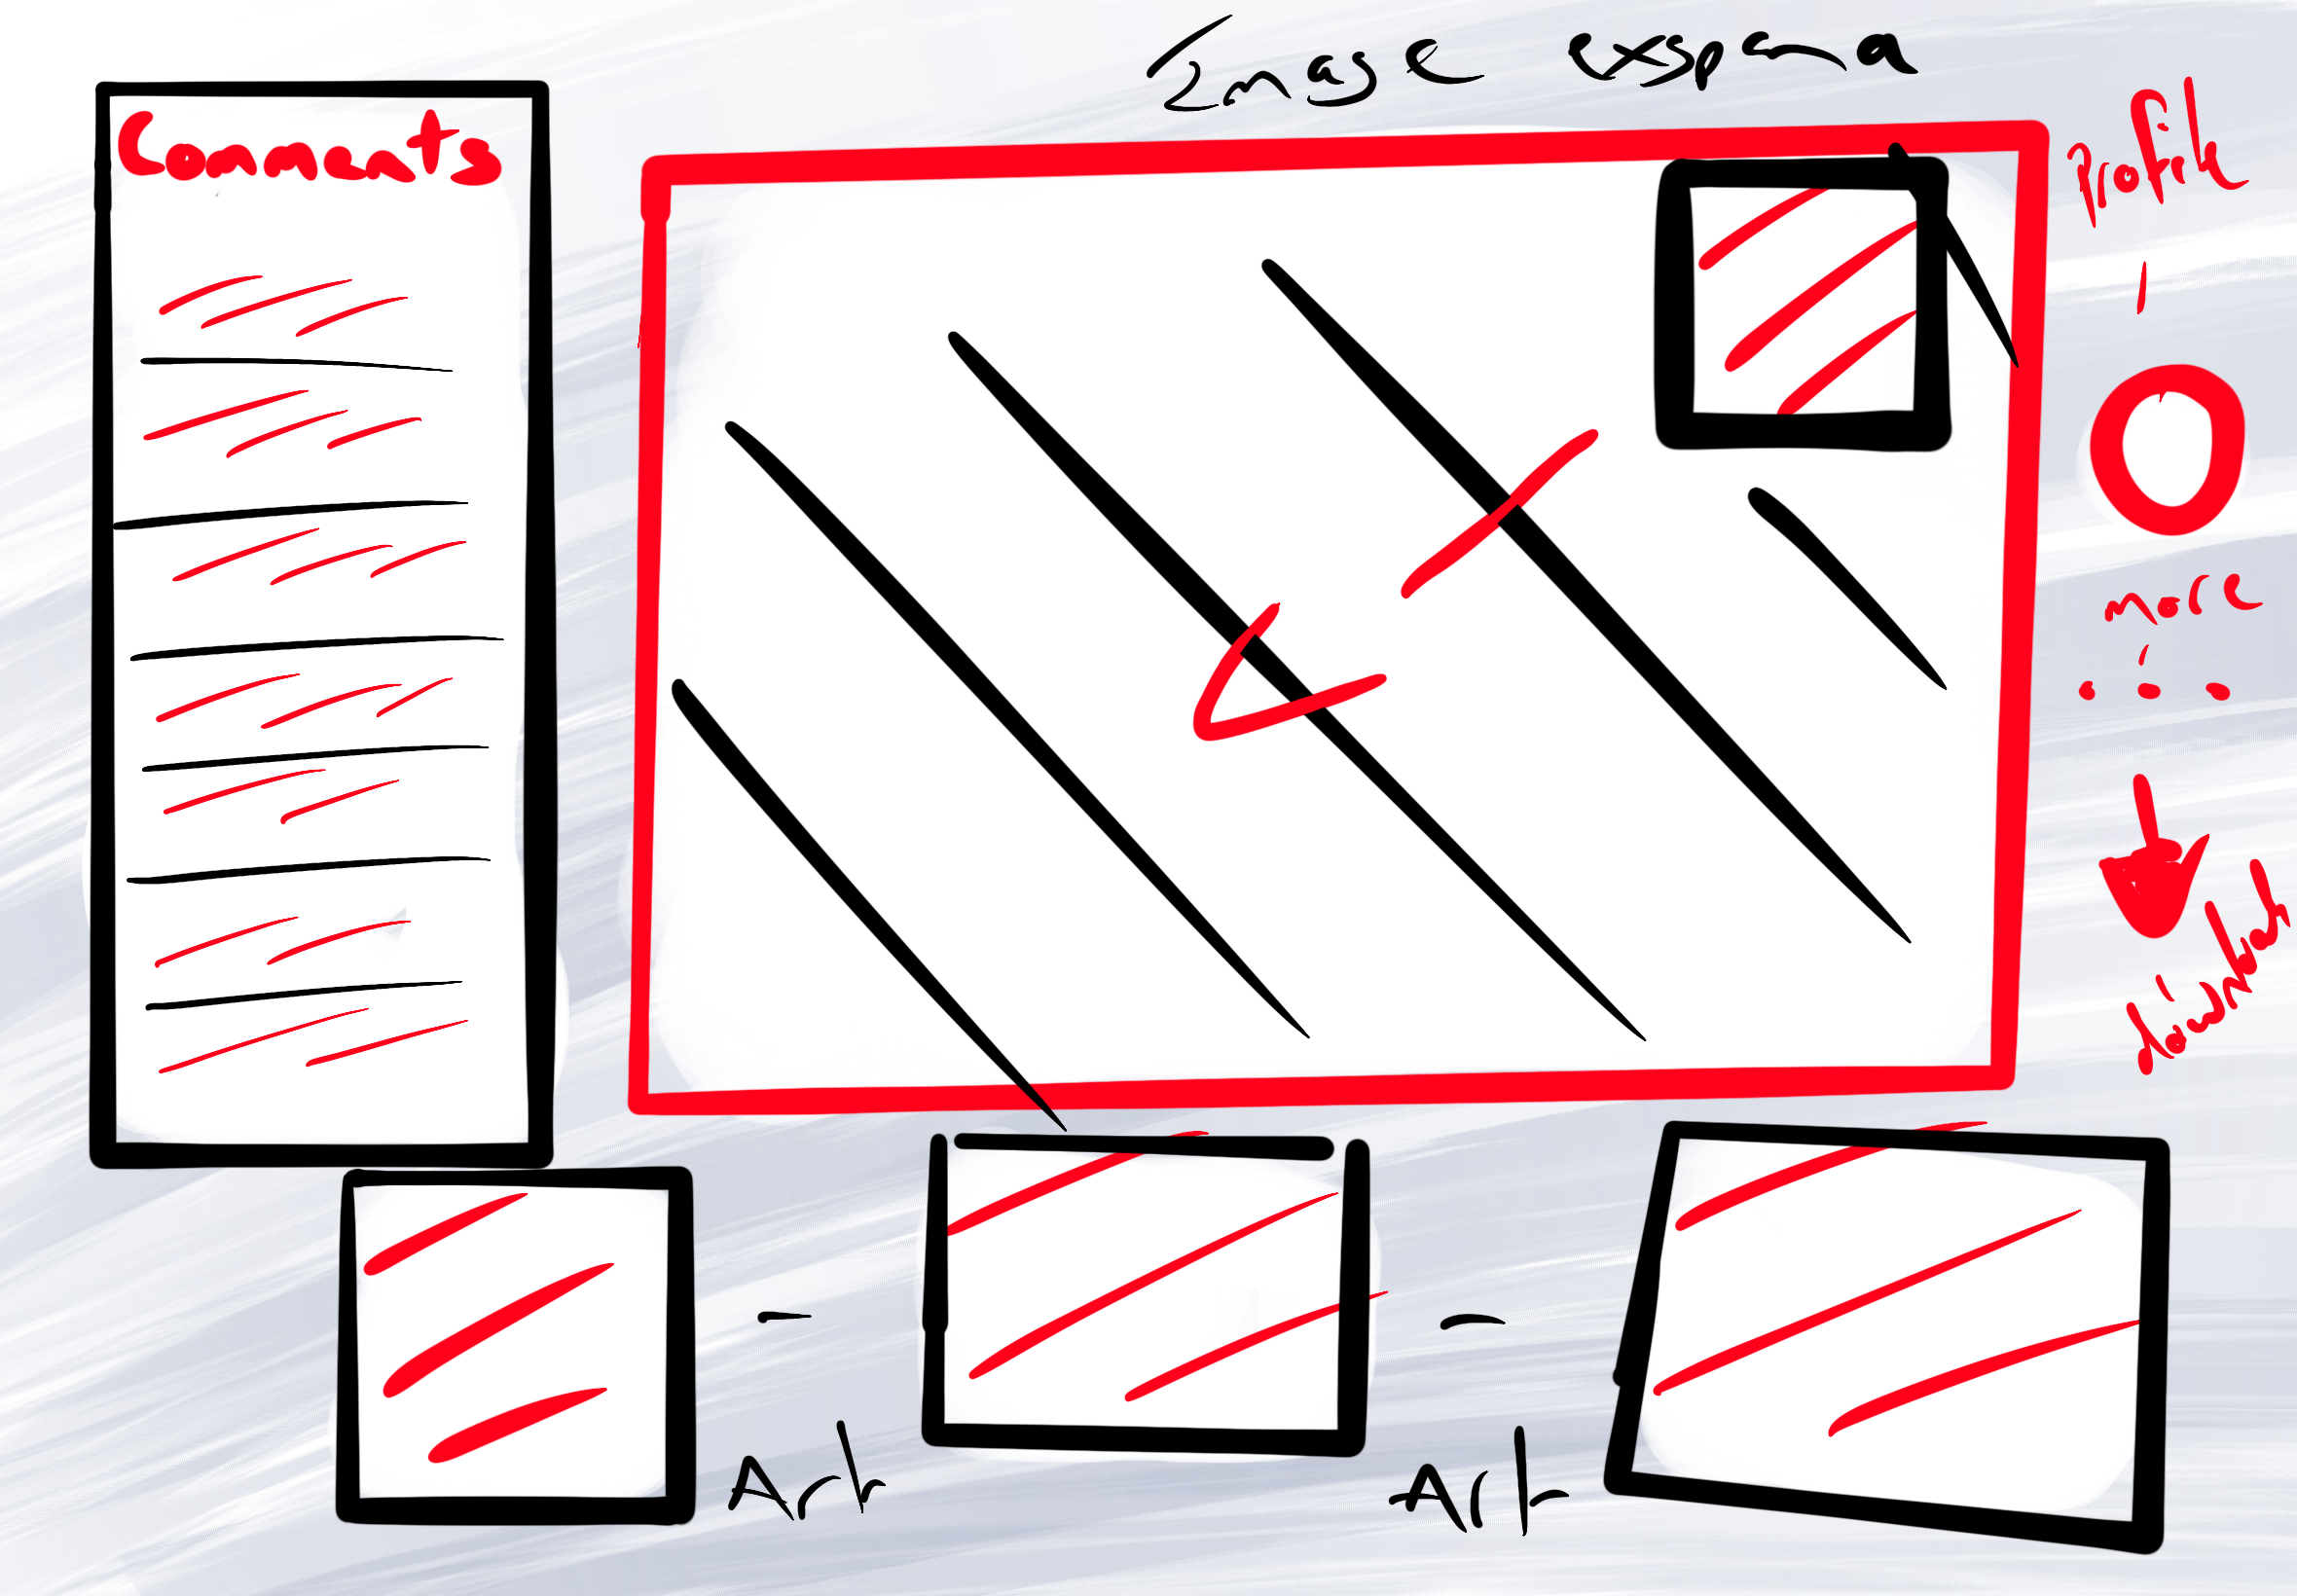 Image exspand
Comments
Profile
more
download
Art
Art